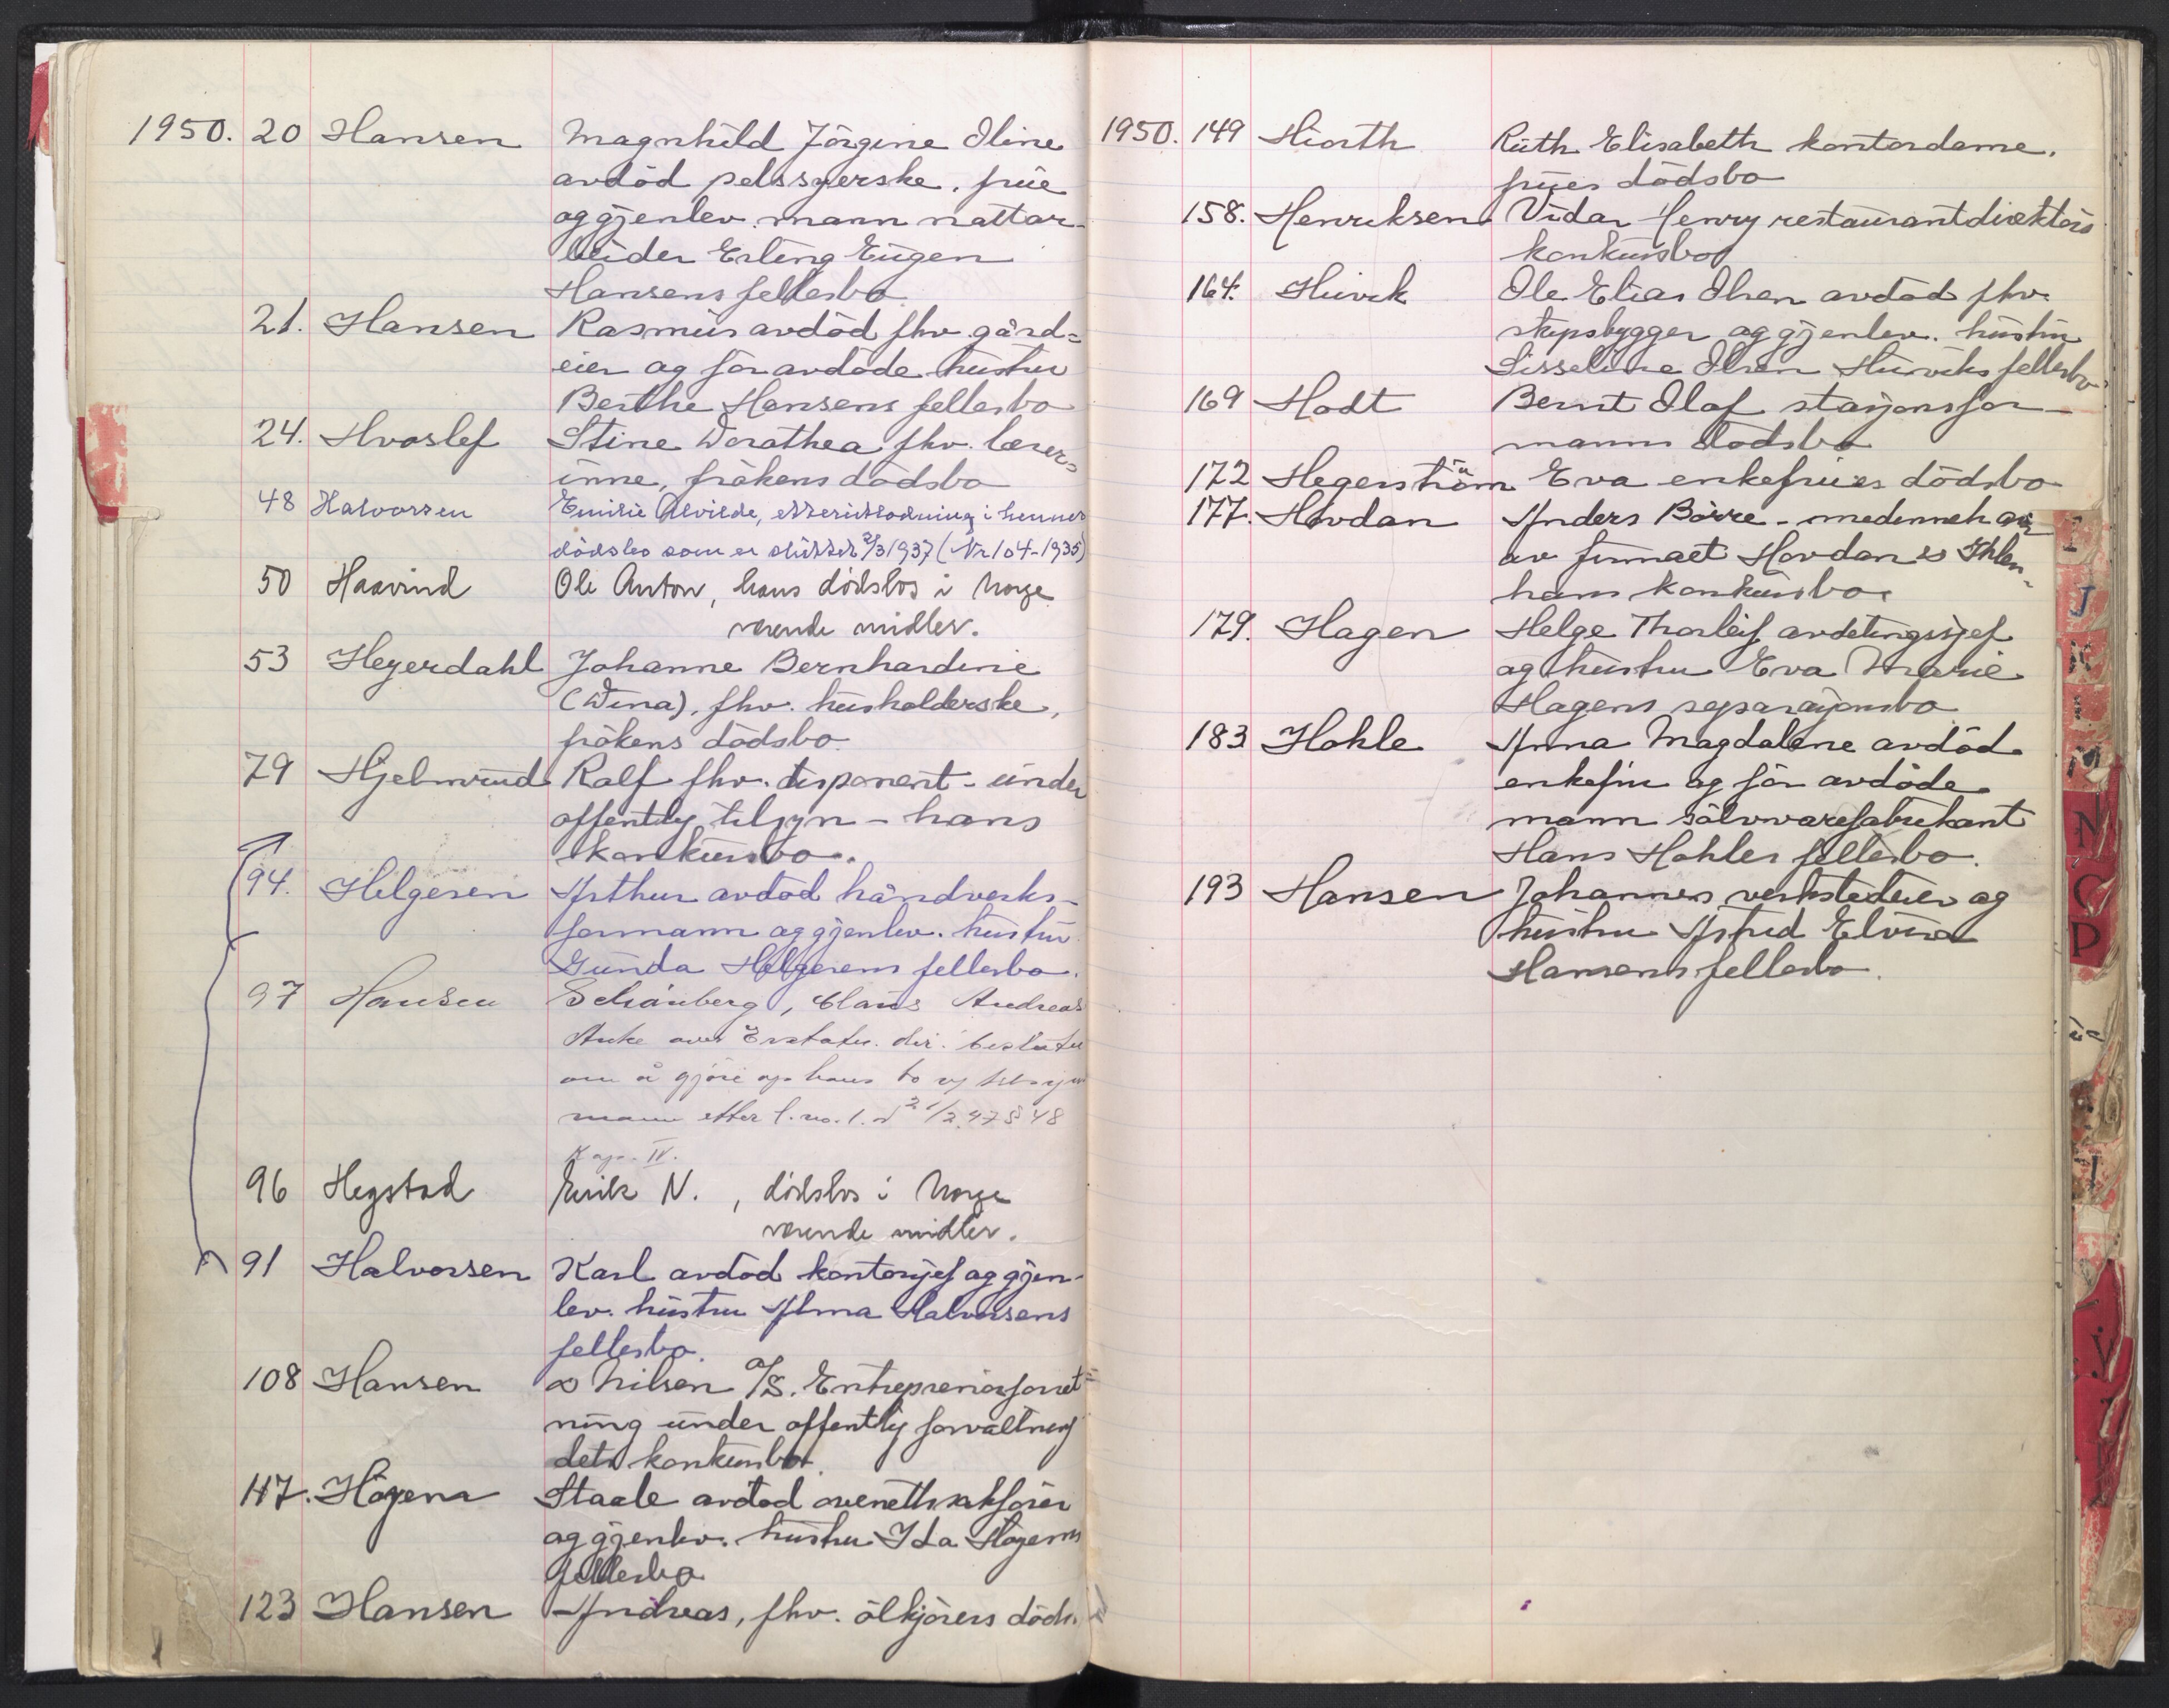 1950. 20 Hansen Magnhild Jörgine Oline
avdöd pelssyerske, frue
og gjenlev. mann nattar-
beider Erling Eugen
Hansens fellesbo
21. Hansen Rasmus avdöd fhv. gård=
eier og för avdöde hustru
Berthe Hansens fellesbo
24. Hvoslef Stine Dorothea fhv. lærer=
inne, frökens dödsbo
48 Halvorsen Emilie Alvilde, etterutlodning i hennes
dödsbo som er sluttet 2/3 1937 (Nr 104-1935)
50 Haavind Ole Anton, hans dödsbos i Norge
værende midler.
53 Heyerdahl Johanne Bernhardine
(Dina), fhv. husholderske,
frökens dödsbo
79 Hjelmrud Ralf fhv. disponent - under
offentlig tilsyn - hans
konkursbo.
94. Helgesen Arthur avdöd håndverks-
formann og gjenlev. hustru
Gunda Helgesens fellesbo.
97 Hansen Schånberg, Claus Andreas
Anke over Erstatn. dir. beslutn
om å gjöre op hans bo
mann etter l. no. 1. 21/2 47 § 48
Kap. IV.
96 Hegstad Erik N., dödsbos i Norge
værende midler.
91 Halvorsen Karl avdöd kontorsjef og gjen-
lev. hustru Alma Halvorsens
fellesbo.
108 Hansen & Nilsen A/S. Entreprenörforret=
ning under offentlig forvaltning
dets konkursbo.
117. Höyem Staale avdöd overrettssakförer
og gjenlev. hustru Ida Höyems
fellesbo
123 Hansen Andreas, fhv. ölkjörers döds.
1950. 149 Hiorth Ruth Elisabeth kontordame,
frues dödsbo
158. Henriksen Vidar Henry restaurantdirektörs
konkursbo
164. Hurvik Ole Elias Olsen avdöd fhv.
skipsbygger og gjenlev. hustru
Lisseline Olsen Hurviks fellesbo
169 Hodt Bernt Olaf stasjonsfor-
manns dödsbo
172 Hegerström Eva enkefrues dödsbo
177. Hovdan Anders Börre - medinnehaver
av firmaet Hovdan & Ihlen
hans konkursbo.
179. Hagen Helge Thorleif avdelingssjef
og hustru Eva Marie
Hagens separasjonsbo
183 Hohle Anna Magdalene avdöd
enkefru og för avdöde
mann sölvvarefabrikant
Hans Hohles fellesbo.
193 Hansen Johannes verkstedeier og
hustru Astrid Elvira
Hansens fellesbo.
I
J
K
L
M
N
O
P